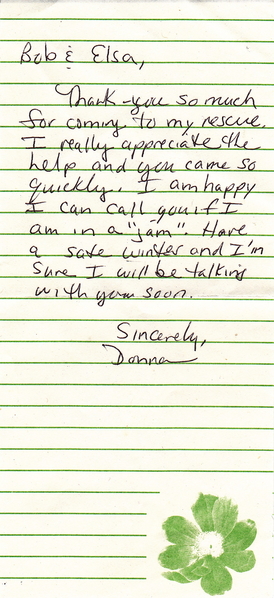 Bob & Elsa,
Thank-you so much
for coming to my rescue.
I really appreciate the
help and you came so
quickly. I am happy
I can call you if I
am in a "jam". Have
a safe winter and I'm
sure I will be talking
with you soon.
Sincerely,
Donna